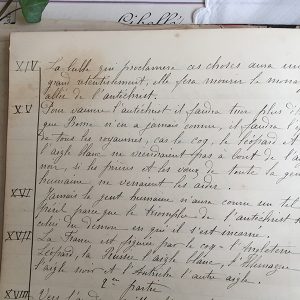 Libellé
XIV La lutte qui proclamera ces choses aura un
grand retentissement, elle fera mourir le mons
allié de l'antéchrist.
XV Pour vaincre l'antéchrist il faudra tuer plus d'
que Rome n'en a jamais connu, il faudra l'
de tous les royaumes, car le coq, le léopard et
l'aigle blanc ne viendraient pas à bout de l'ai
noir, si les prières et les vœux de toute la gen
humaine ne venaient les aider.
XVI Jamais le gent humaine n'aura connu un tel
péril parce que le triomphe de l'antéchrist s
celui du démon en qui il s'est incarné.
XVII La France est figurée par le coq - l'Angleterre
léopard, la Russie l'aigle blanc, l'Allemagne
l'aigle noir et l'Autriche l'autre aigle.
2me partie
XVIII Vers l'a